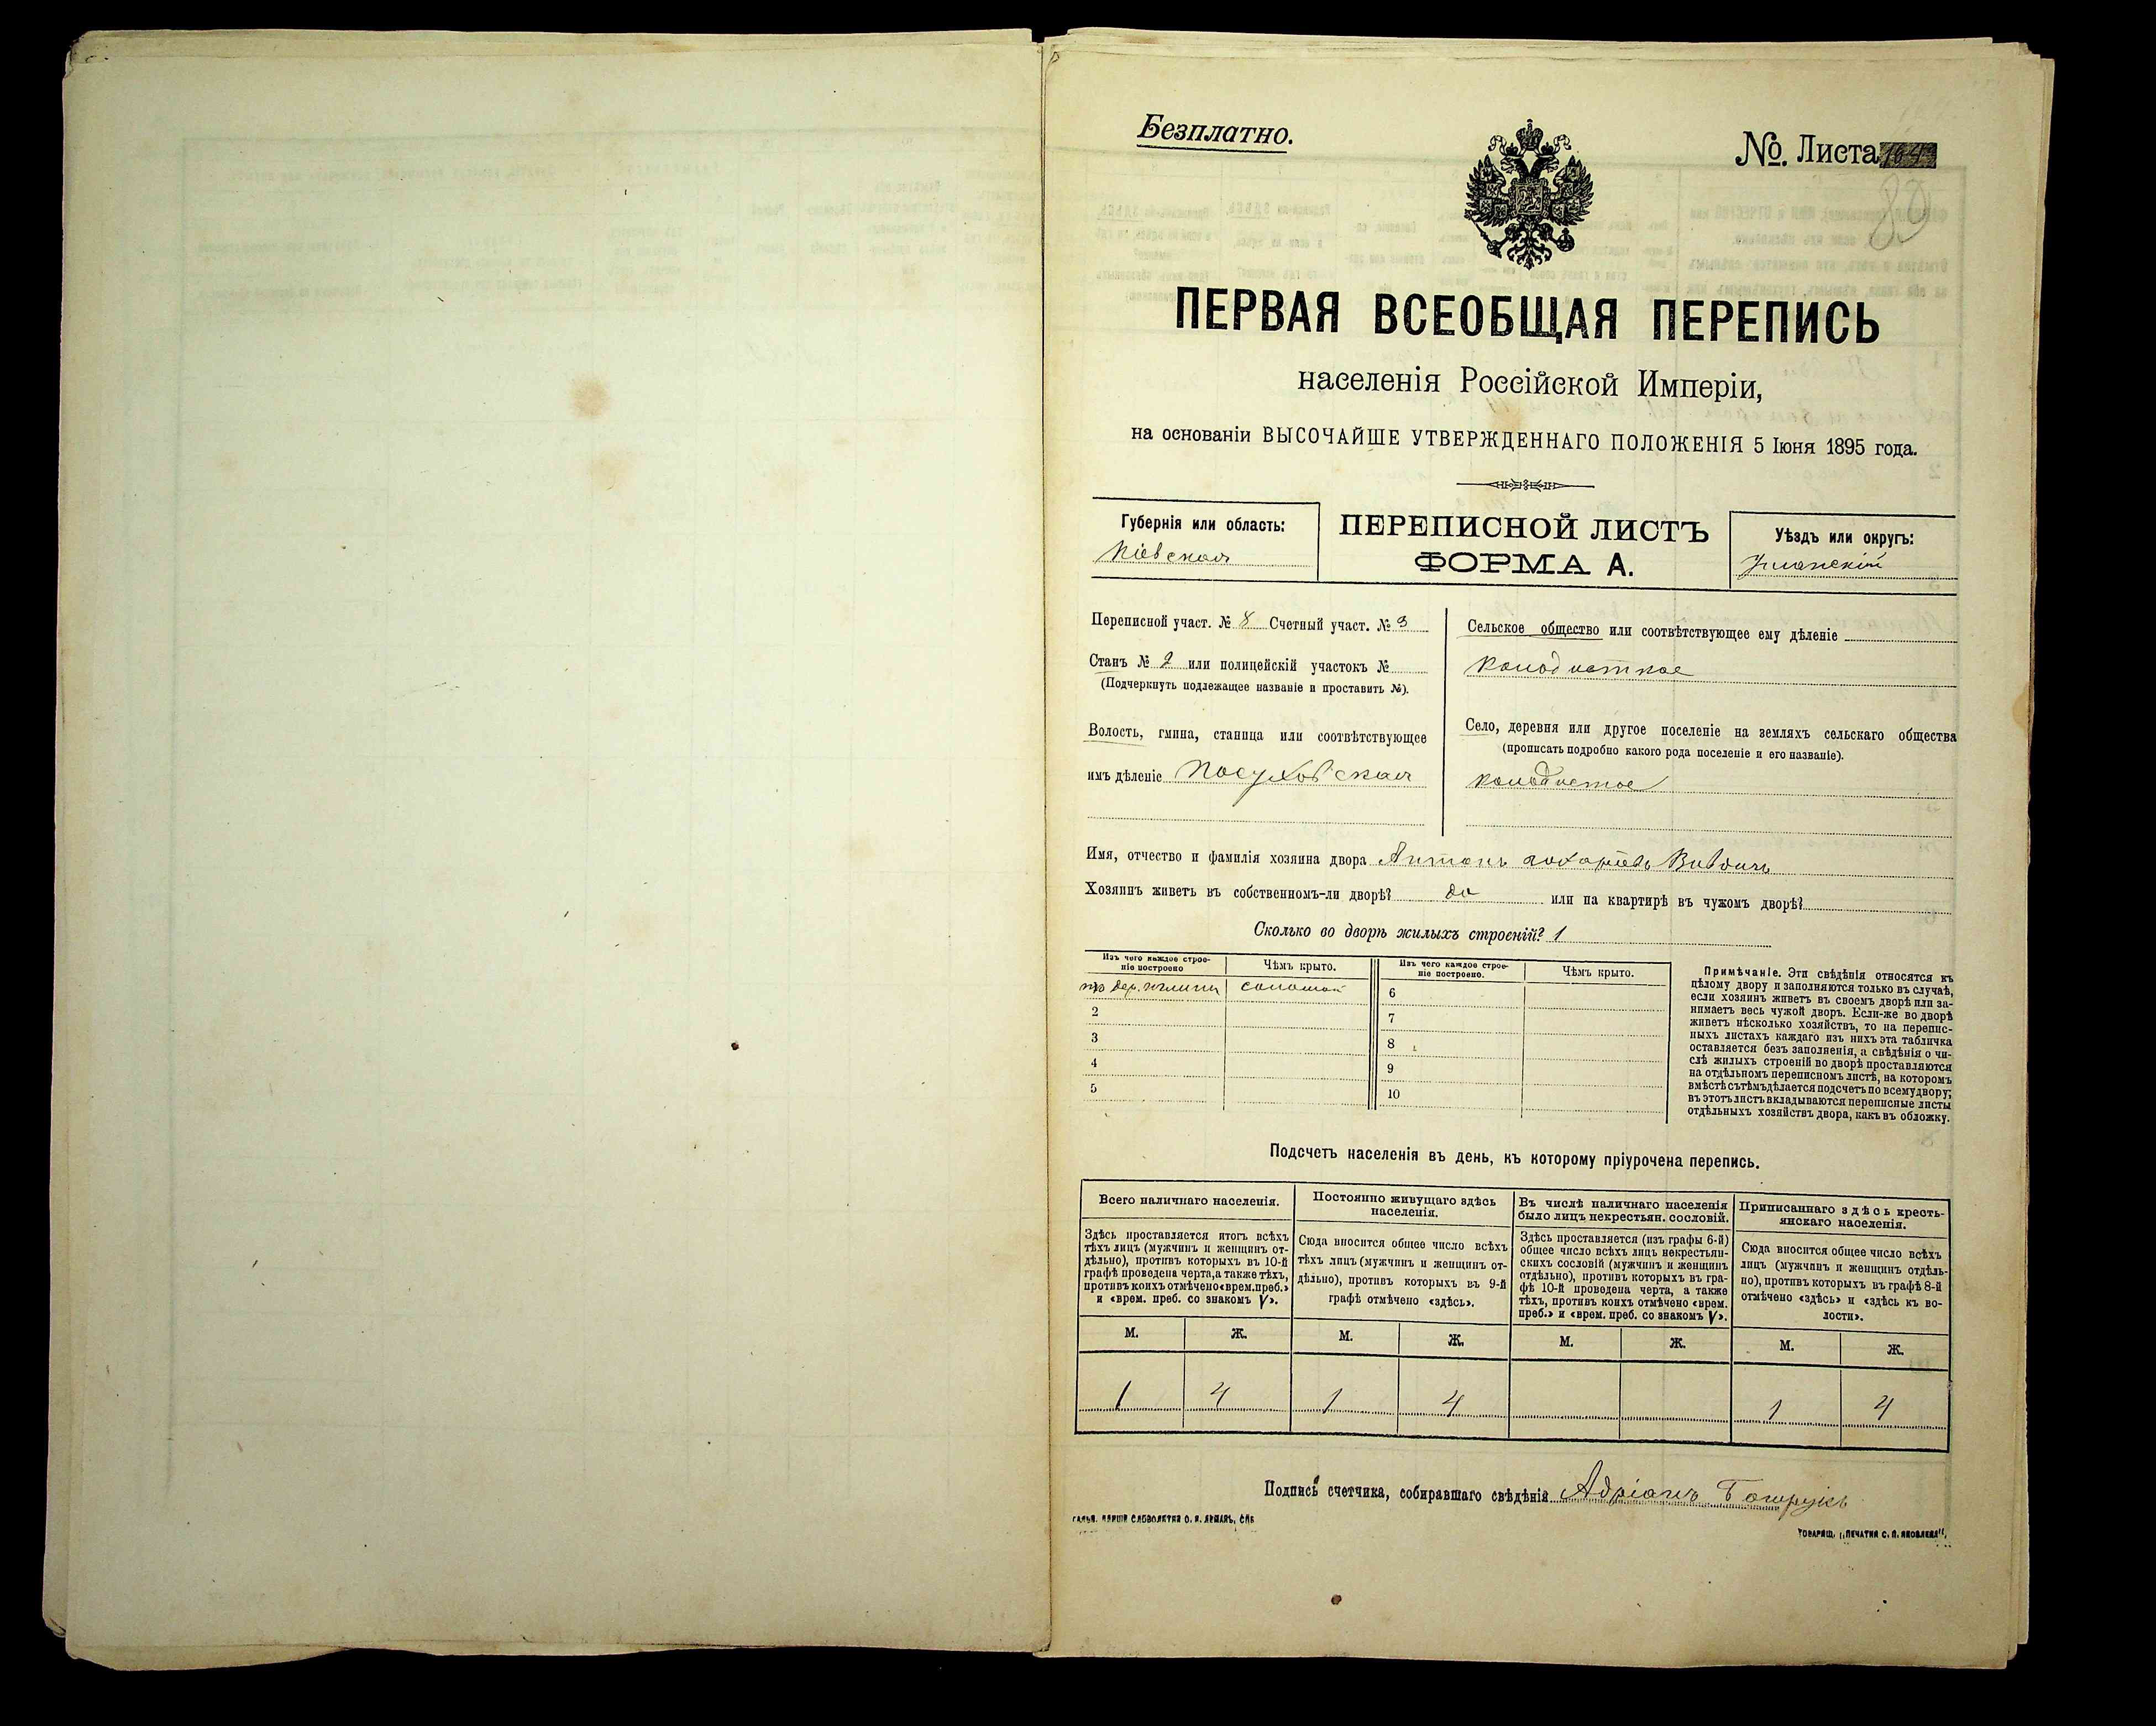 Безплатно.
№. Листа
80
ПЕРВАЯ ВСЕОБЩАЯ ПЕРЕПИСЬ
населенія Россійской Имперіи,
на основаніи ВЫСОЧАЙШЕ УТВЕРЖДЕННАГО ПОЛОЖЕНІЯ 5 Іюня 1895 года.
Губернія или область:
Кіевская
ПЕРЕПИСНОЙ ЛИСТЪ
ФОРМА А.
Уѣздъ или округъ:
Уманскій
Переписной участ. № 8 Счетный участ. № 3
Станъ № 2 или полицейскій участокъ №
(Подчеркнуть подлежащее названіе и проставить №).
Волость, гмина, станица или соотвѣтствующее
имъ дѣленіе Посуховская
Сельское общество или соотвѣтствующее ему дѣленіе
Колодистое
Село, деревня или другое поселеніе на земляхъ сельскаго общества
(прописать подробно какого рода поселеніе и его названіе).
Колодистое
Имя, отчество и фамилія хозяина двора Антонъ
Хозяинъ живетъ въ собственномъ-ли дворѣ? да или на квартирѣ въ чужомъ дворѣ?
Сколько во дворѣ жилыхъ строеній? 1
Изъ чего каждое строе-
ніе построено
Чѣмъ крыто.
Изъ чего каждое строе-
ніе построено.
Чѣмъ крыто.
дер. глины соломой
6
2
7
3
8
4
9
5
10
Примѣчаніе. Эти свѣдѣнія относятся къ
цѣлому двору и заполняются только въ случаѣ,
если хозяинъ живетъ въ своемъ дворѣ или за-
нимаетъ весь чужой дворъ. Если-же во дворѣ
живетъ нѣсколько хозяйствъ, то на перепис-
ныхъ листахъ каждаго изъ нихъ эта табличка
оставляется безъ заполненія, а свѣдѣнія о чи-
слѣ жилыхъ строеній во дворѣ проставляются
на отдѣльномъ переписномъ листѣ, на которомъ
вмѣстѣ съ тѣмъ дѣлается подсчетъ по всему двору;
въ этотъ листъ вкладываются переписные листы
отдѣльныхъ хозяйствъ двора, какъ въ обложку.
Подсчетъ населенія въ день, къ которому пріурочена перепись.
Всего наличнаго населенія.
Здѣсь проставляется итогъ всѣхъ
тѣхъ лицъ (мужчинъ и женщинъ от-
дѣльно), противъ которыхъ въ 10-й
графѣ проведена черта, а также тѣхъ,
противъ коихъ отмѣчено «врем. преб.»
и «врем. преб. со знакомъ V».
Постоянно живущаго здѣсь
населенія.
Сюда вносится общее число всѣхъ
тѣхъ лицъ (мужчинъ и женщинъ от-
дѣльно), противъ которыхъ въ 9-й
графѣ отмѣчено «здѣсь».
Въ числѣ наличнаго населенія
было лицъ некрестьян. сословій.
Здѣсь проставляется (изъ графы 6-й)
общее число всѣхъ лицъ некрестьян-
скихъ сословій (мужчинъ и женщинъ
отдѣльно), противъ которыхъ въ гра-
фѣ 10-й проведена черта, а также
тѣхъ, противъ коихъ отмѣчено «врем.
преб.» и «врем. преб. со знакомъ V».
Приписаннаго здѣсь кресть-
янскаго населенія.
Сюда вносится общее число всѣхъ
лицъ (мужчинъ и женщинъ отдѣль-
но), противъ которыхъ въ графѣ 8-й
отмѣчено «здѣсь» и «здѣсь къ во-
лости».
М. Ж. М. Ж. М. Ж. М. Ж.
1 4 1 4 1 4
Подпись счетчика, собиравшаго свѣдѣнія Адріанъ
ТОВАРИЩ. „ПЕЧАТНЯ С. П. ЯКОВЛЕВА".